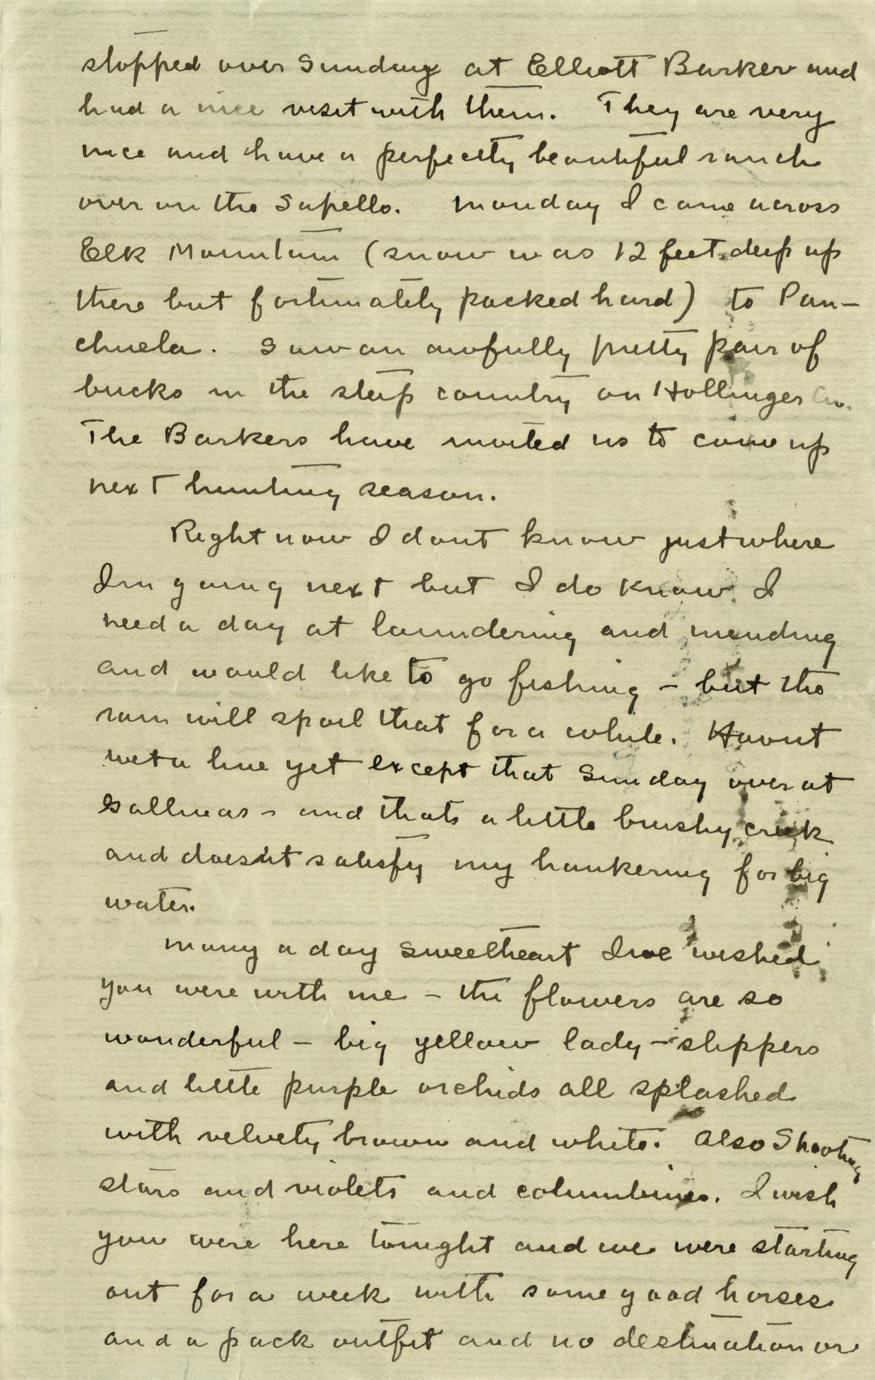 stopped over Sunday at Elliott Barker and
had a nice visit with them. They are very
nice and have a perfectly beautiful ranch
over on the Sapello. Monday I came across
Elk Mountain (snow was 12 feet deep up
there but fortunately packed hard) to Pan-
chuela. Saw an awfully pretty pair of
bucks in the steep country on Hollinger Cn.
The Barkers have invited us to come up
next hunting season.
Right now I dont know just where
Im going next but I do know I
need a day at laundering and mending
and would like to go fishing - but the
rain will spoil that for a while. Havnt
wet a line yet except that Sunday over at
Gallinas - and thats a little brushy creek
and doesnt satisfy my hankering for big
water.
Many a day sweetheart Ive wished
you were with me - the flowers are so
wonderful - big yellow lady-slippers
and little purple orchids all splashed
with velvety brown and white. Also Shooting
stars and violets and columbines. I wish
you were here tonight and we were starting
out for a week with some good horses
and a pack outfit and no destination or